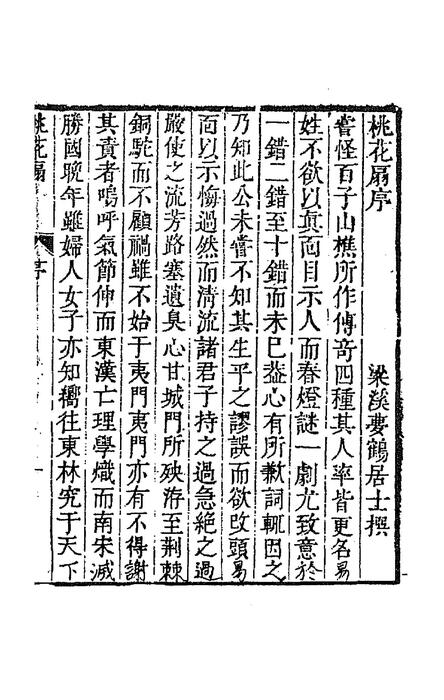 桃花扇序
梁溪夢鶴居士撰
嘗怪百子山樵所作傳奇四種其人率皆更名易
姓不欲以眞面目示人而春燈謎一劇尤致意於
一錯二錯至十錯而未已蓋心有所歉詞輒因之
乃知此公未嘗不知其生平之謬誤而欲改頭易
面以示悔過然而清流諸君子持之過急絕之過
嚴使之流芳路塞遺臭心甘城門所殃洊至荆棘
銅駝而不顧禍雖不始于夷門夷門亦有不得謝
其責者嗚呼氣節伸而東漢亡理學熾而南宋滅
勝國晚年雖婦人女子亦知嚮往東林究于天下
桃花扇
序